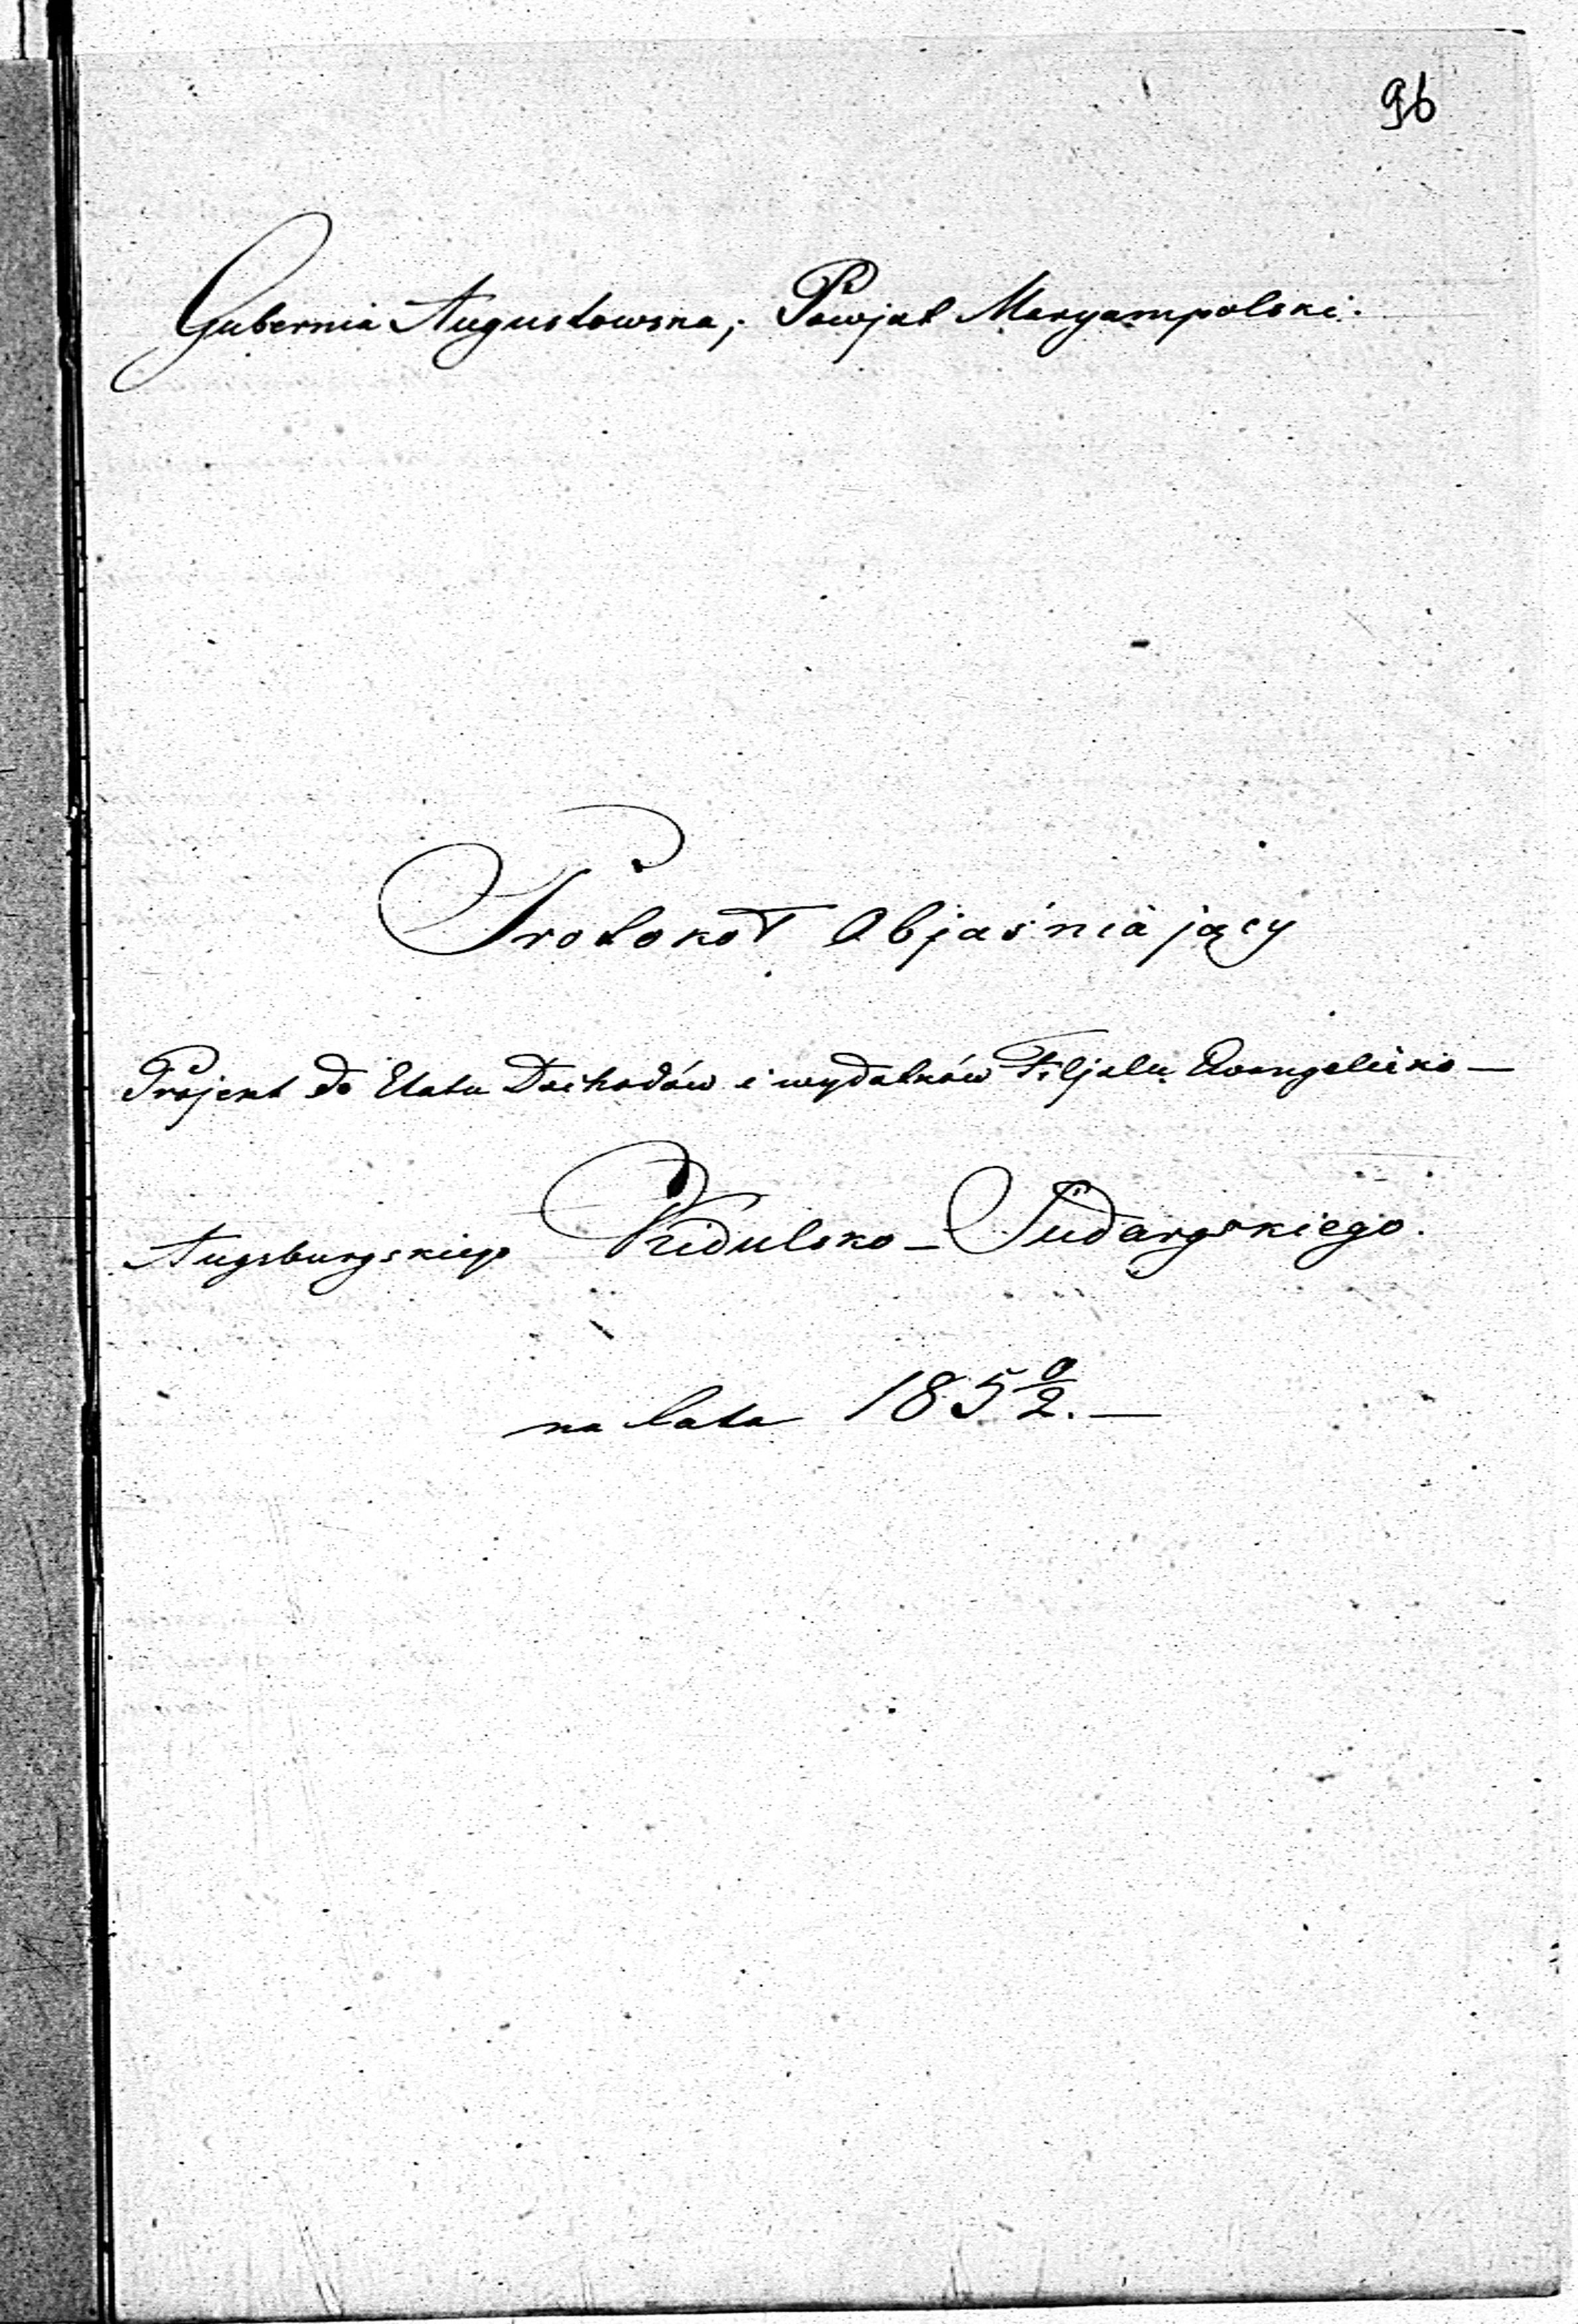 96
Gubernia Augustowska; Powjat Maryampolski.
Protokoł Objaśniający
Projekt do Etatu Dochodów i wydatków Filjału Ewangelicko—
Augsburgskiego Kidulsko-Sudargskiego.
na lata 185 0/2.—